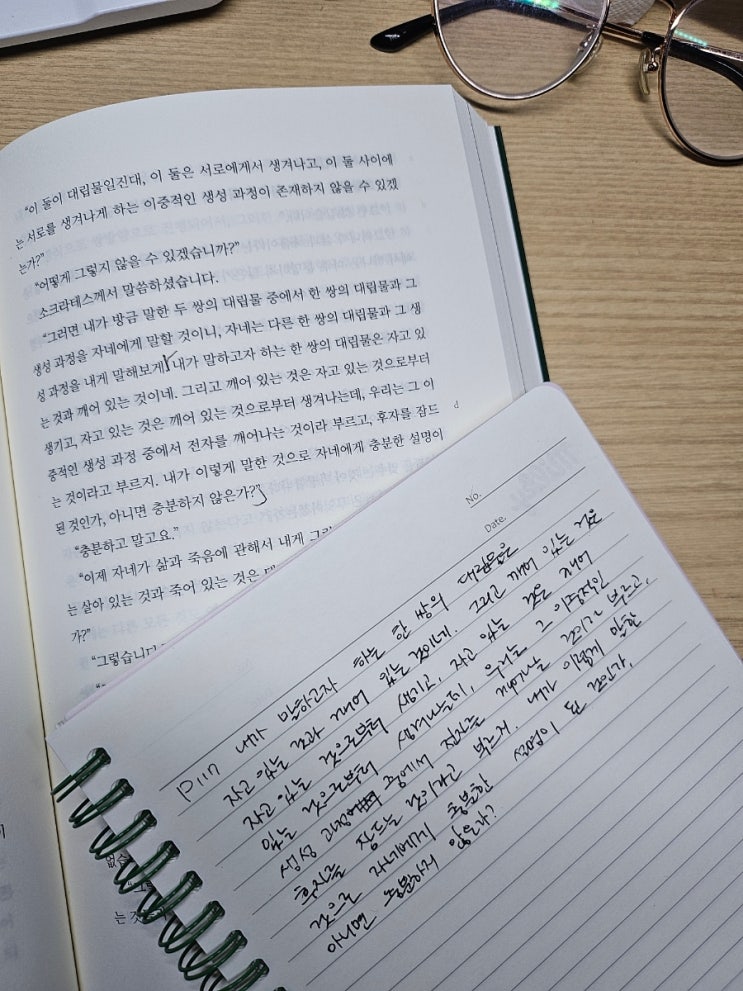 "이 둘이 대립물일진대, 이 둘은 서로에게서 생겨나고, 이 둘 사이에
는 서로를 생겨나게 하는 이중적인 생성 과정이 존재하지 않을 수 있겠
는가?"
"어떻게 그렇지 않을 수 있겠습니까?"
소크라테스께서 말씀하셨습니다.
"그러면 내가 방금 말한 두 쌍의 대립물 중에서 한 쌍의 대립물과 그
생성 과정을 자네에게 말할 것이니, 자네는 다른 한 쌍의 대립물과 그 생
성 과정을 내게 말해보게. 내가 말하고자 하는 한 쌍의 대립물은 자고 있
는 것과 깨어 있는 것이네. 그리고 깨어 있는 것은 자고 있는 것으로부터
생기고, 자고 있는 것은 깨어 있는 것으로부터 생겨나는데, 우리는 그 이
중적인 생성 과정 중에서 전자를 깨어나는 것이라 부르고, 후자를 잠드
는 것이라고 부르지. 내가 이렇게 말한 것으로 자네에게 충분한 설명이
된 것인가, 아니면 충분하지 않은가?"
"충분하고 말고요."
"이제 자네가 삶과 죽음에 관해서 내게
는 살아 있는 것과 죽어 있는 것은
가?"
"그렇습니다
d
없습
는 것
No.
Date.
P117 내가 말하고자 하는 한 쌍의 대립물은
자고 있는 것과 깨어 있는 것이네. 그리고 깨어 있는 것은
자고 있는 것으로부터 생기고, 자고 있는 것은 깨어
있는 것으로부터 생겨나는데, 우리는 그 이중적인
생성 과정 중에서 전자는 깨어나는 것이라 부르고,
후자를 잠드는 것이라고 부르지. 내가 이렇게 말한
것으로 자네에게 충분한 설명이 된 것인가,
아니면 충분하지 않은가?